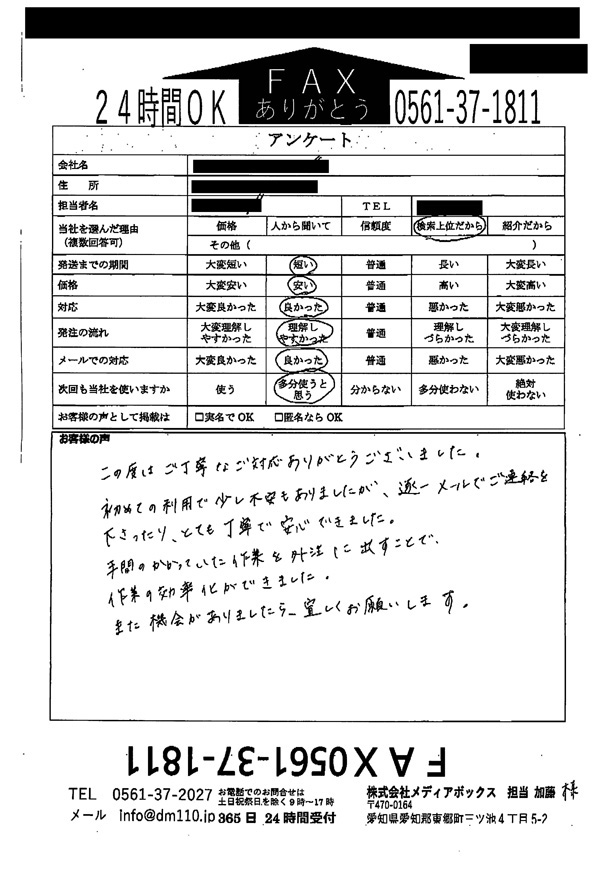 24時間OK
FAX
ありがとう
0561-37-1811
アンケート
会社名
住 所
担当者名 TEL
当社を選んだ理由(複数回答可) 価格 人から聞いて 信頼度 検索上位だから 紹介だから
その他( )
発送までの期間 大変短い 短い 普通 長い 大変長い
価格 大変安い 安い 普通 高い 大変高い
対応 大変良かった 良かった 普通 悪かった 大変悪かった
発注の流れ 大変理解しやすかった 理解しやすかった 普通 理解しづらかった 大変理解しづらかった
メールでの対応 大変良かった 良かった 普通 悪かった 大変悪かった
次回も当社を使いますか 使う 多分使うと思う 分からない 多分使わない 絶対使わない
お客様の声として掲載は □実名でOK □匿名ならOK
お客様の声
この度はご丁寧なご対応ありがとうございました。
初めての利用で少し不安もありましたが、逐一メールでご連絡を
下さったり、とても丁寧で安心できました。
手間のかかっていた作業を外注に出すことで、
作業の効率化ができました。
また機会がありましたら、宜しくお願いします。
FAX0561-37-1811
TEL 0561-37-2027 お電話でのお問合せは土日祝祭日を除く9時〜17時
メール info@dm110.jp 365日 24時間受付
株式会社メディアボックス 担当 加藤 様
〒470-0164
愛知県愛知郡東郷町三ツ池4丁目5-2